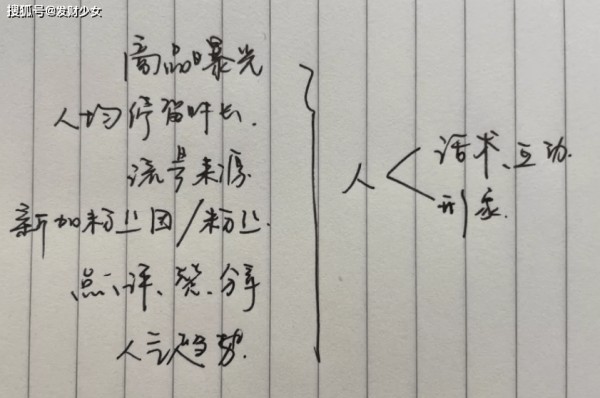 搜狐号@发财少女
商品曝光
人均停留时长.
流量来源
新加粉丝团/粉丝.
点、评、赞、分享
人气趋势.
人
话术、互动.
形象.